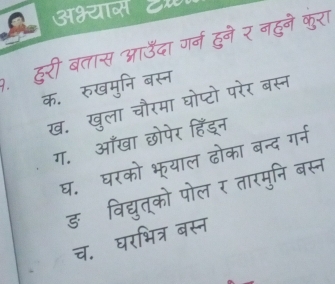 अभ्यास
१. हुरी बतास आउँदा गर्न हुने र नहुने कुरा
क. रुखमुनि बस्न
ख. खुला चौरमा घोप्टो परेर बस्न
ग. आँखा छोपेर हिँड्न
घ. घरको झ्याल ढोका बन्द गर्न
ङ विद्युत्‌को पोल र तारमुनि बस्न
च. घरभित्र बस्न